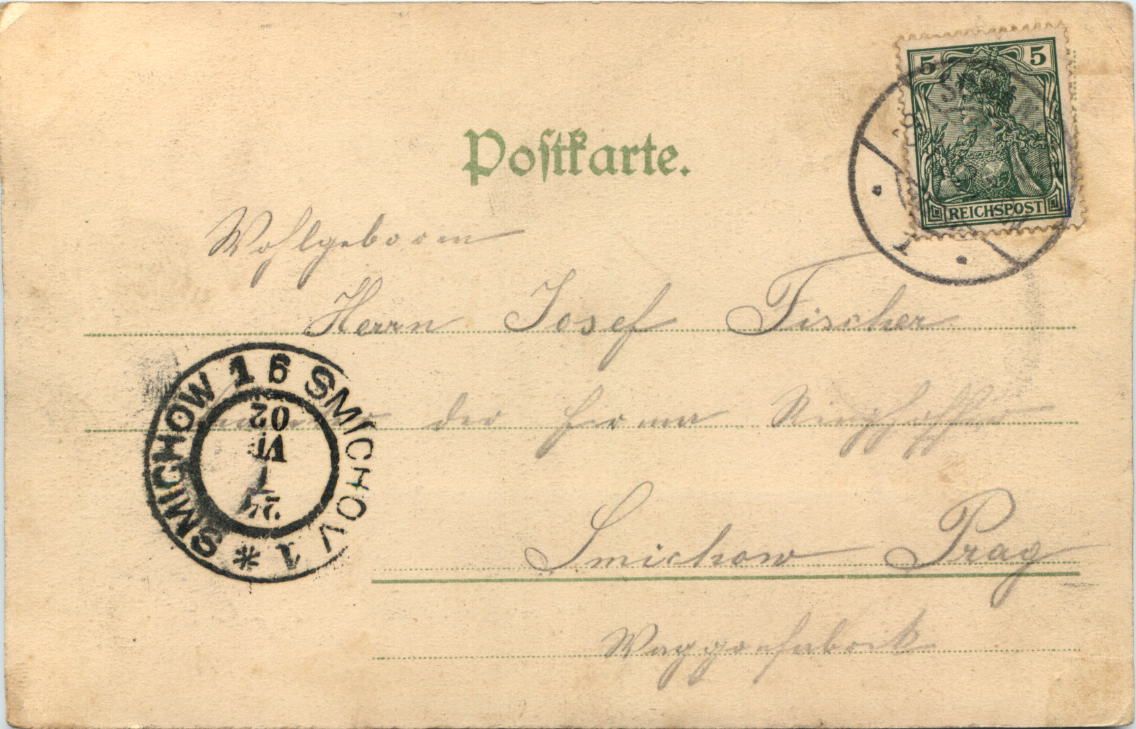 5 5
REICHSPOST
Postkarte.
Wohlgeborn
Herrn Josef Fischer
der Firma Ringhoffer
Smichow Prag
Waggonfabrik
SMICHOW 1 * SMICHOV 1 6
24
VI
02